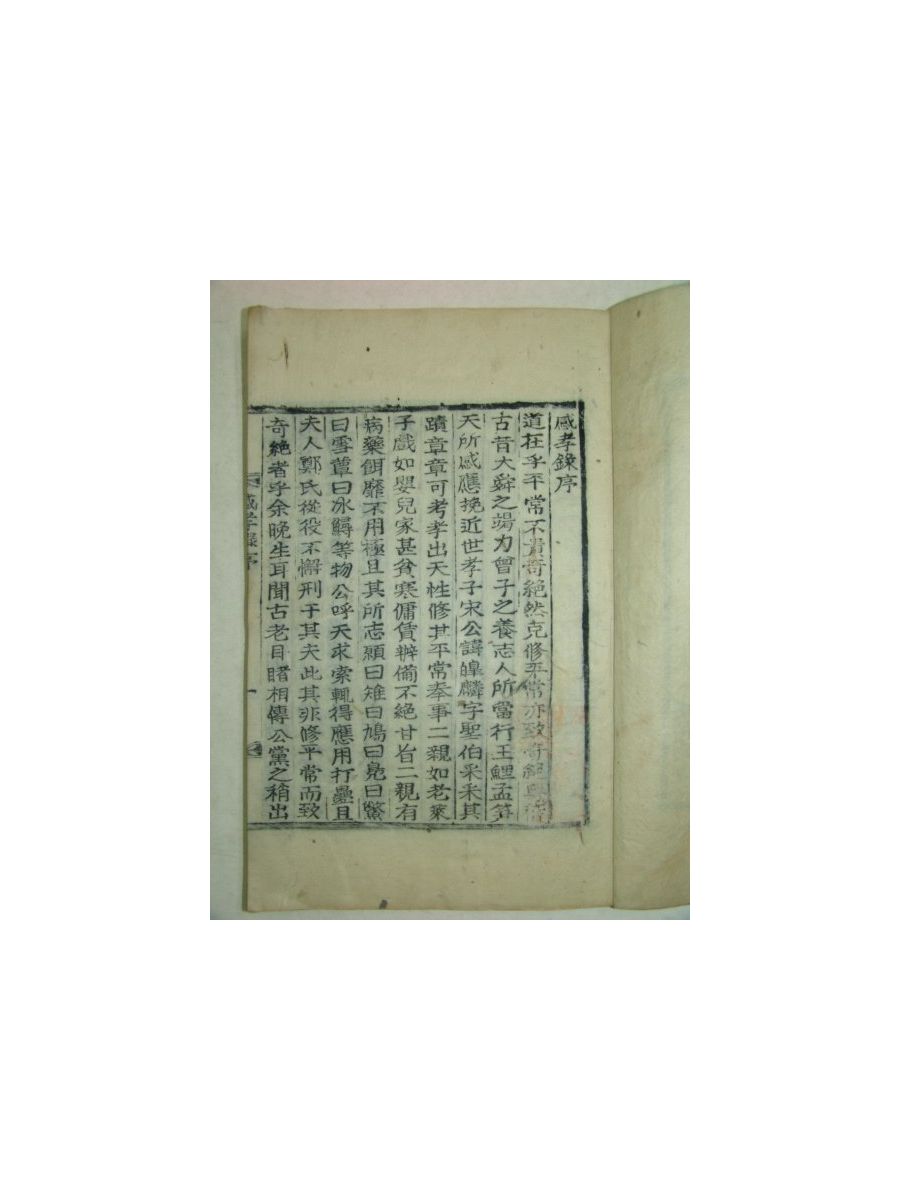 感孝錄序
道在乎平常不貴奇絶然克修平常亦致奇絶
古昔大舜之竭力曾子之養志人所當行王鯉孟笋
天所感應挽近世孝子宋公諱煌麟字聖伯采采其
蹟章章可考孝出天性修其平常奉事二親如老萊
子戲如嬰兒家甚貧寒傭賃辦備不絶甘旨二親有
病藥餌靡不用極且其所志願曰雉曰鳩曰鳧曰鱉
曰雪蕈曰氷鱘等物公呼天求索輒得應用打
且
夫人鄭氏從役不懈刑于其夫此其非修平常而致
奇絶者乎余晩生耳聞古老目睹相傳公黨之稍出
感孝錄序
一